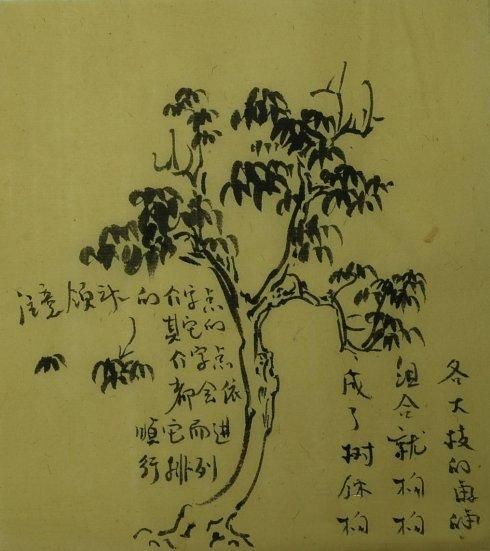 各大枝的
组合就
成了树
注意领头的介字点
其它的
介字点
都会依
顺它而进
行排列